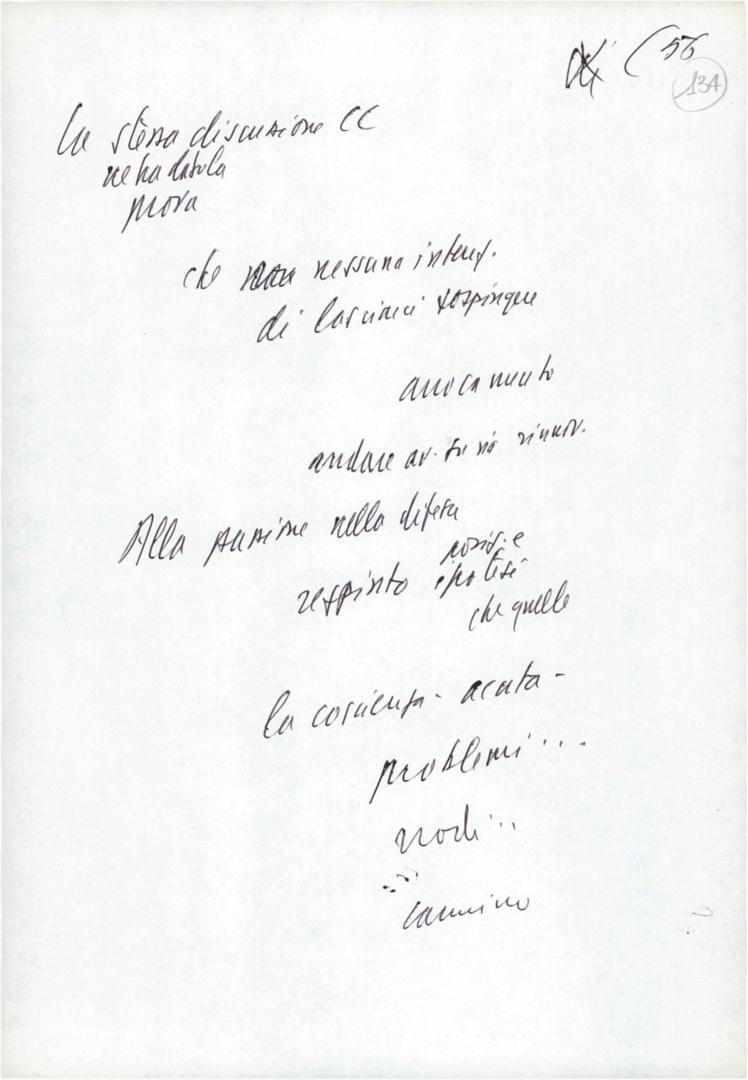 (56
134
La stessa discussione CC
ne ha dato la
prova
che nessuna intenz.
di lasciarci sospingere
arroccamento
andare av. su via rinnov.
Alla passione nella difesa
respinto posiz. e
ipotesi
che quelle
la coscienza - acuta -
problemi...
nodi...
cammino